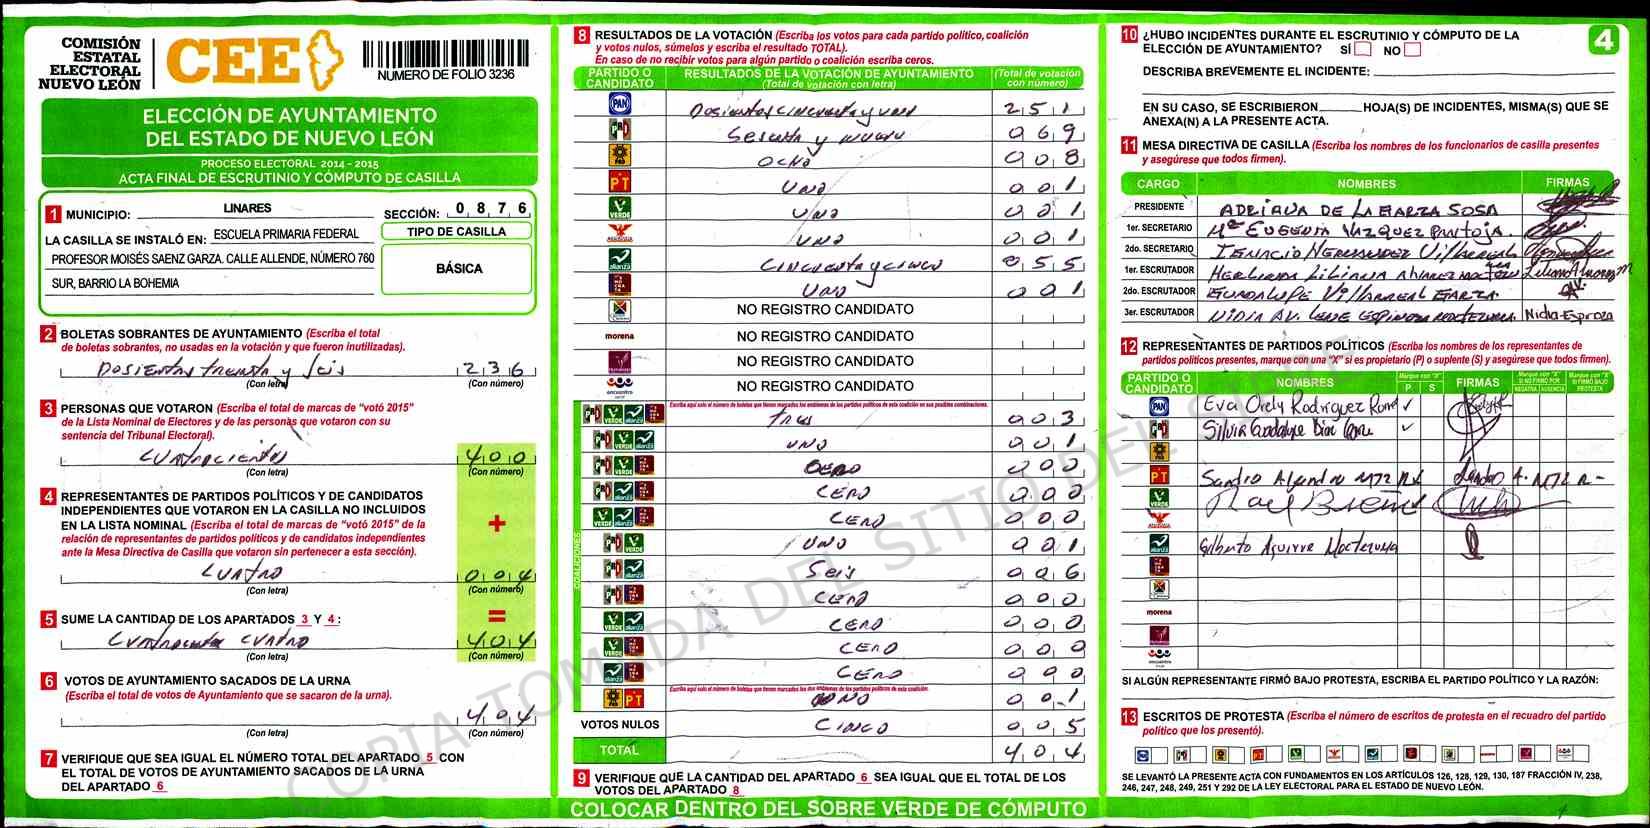 COMISIÓN
ESTATAL
ELECTORAL
NUEVO LEÓN
CEE
NUMERO DE FOLIO 3236
ELECCIÓN DE AYUNTAMIENTO
DEL ESTADO DE NUEVO LEÓN
PROCESO ELECTORAL 2014 - 2015
ACTA FINAL DE ESCRUTINIO Y CÓMPUTO DE CASILLA
1 MUNICIPIO: LINARES
SECCIÓN: 0 8 7 6
LA CASILLA SE INSTALÓ EN: ESCUELA PRIMARIA FEDERAL
PROFESOR MOISÉS SAENZ GARZA. CALLE ALLENDE, NÚMERO 760
SUR, BARRIO LA BOHEMIA
TIPO DE CASILLA
BÁSICA
2 BOLETAS SOBRANTES DE AYUNTAMIENTO (Escriba el total
de boletas sobrantes, no usadas en la votación y que fueron inutilizadas).
Dosientas treinta y seis 2 3 6
(Con letra) (Con número)
3 PERSONAS QUE VOTARON (Escriba el total de marcas de “votó 2015”
de la Lista Nominal de Electores y de las personas que votaron con su
sentencia del Tribunal Electoral).
4 0 0
(Con letra) (Con número)
4 REPRESENTANTES DE PARTIDOS POLÍTICOS Y DE CANDIDATOS
INDEPENDIENTES QUE VOTARON EN LA CASILLA NO INCLUIDOS
EN LA LISTA NOMINAL (Escriba el total de marcas de “votó 2015” de la
relación de representantes de partidos políticos y de candidatos independientes
ante la Mesa Directiva de Casilla que votaron sin pertenecer a esta sección).
+
Cuatro 0 0 4
(Con letra) (Con número)
=
5 SUME LA CANTIDAD DE LOS APARTADOS 3 Y 4 :
cuatro 4 0 4
(Con letra) (Con número)
6 VOTOS DE AYUNTAMIENTO SACADOS DE LA URNA
(Escriba el total de votos de Ayuntamiento que se sacaron de la urna).
4 0 4
(Con letra) (Con número)
7 VERIFIQUE QUE SEA IGUAL EL NÚMERO TOTAL DEL APARTADO 5 CON
EL TOTAL DE VOTOS DE AYUNTAMIENTO SACADOS DE LA URNA
DEL APARTADO 6
8 RESULTADOS DE LA VOTACIÓN (Escriba los votos para cada partido político, coalición
y votos nulos, súmelos y escriba el resultado TOTAL).
En caso de no recibir votos para algún partido o coalición escriba ceros.
PARTIDO O CANDIDATO RESULTADOS DE LA VOTACIÓN DE AYUNTAMIENTO (Total de votación con letra) (Total de votación con número)
PAN Dosientos cincuenta y uno 2 5 1
PRI Sesenta y nueve 0 6 9
PRD ocho 0 0 8
PT uno 0 0 1
VERDE uno 0 0 1
uno 0 0 1
alianza cincuenta y cinco 0 5 5
uno 0 0 1
NO REGISTRO CANDIDATO
morena NO REGISTRO CANDIDATO
NO REGISTRO CANDIDATO
encuentro NO REGISTRO CANDIDATO
COALICIONES
Escriba aquí solo el número de boletas que tienen marcados los emblemas de los partidos políticos de esta coalición en sus posibles combinaciones.
PRI VERDE alianza tres 0 0 3
PRI VERDE alianza uno 0 0 1
PRI VERDE cero 0 0 0
PRI alianza cero 0 0 0
VERDE alianza cero 0 0 0
PRI VERDE uno 0 0 1
PRI alianza Seis 0 0 6
PRI cero 0 0 0
VERDE alianza cero 0 0 0
VERDE cero 0 0 0
alianza cero 0 0 0
Escriba aquí solo el número de boletas que tienen marcados los dos emblemas de los partidos políticos de esta coalición.
PRD PT uno 0 0 1
VOTOS NULOS cinco 0 0 5
TOTAL 4 0 4
9 VERIFIQUE QUE LA CANTIDAD DEL APARTADO 6 SEA IGUAL QUE EL TOTAL DE LOS
VOTOS DEL APARTADO 8
COLOCAR DENTRO DEL SOBRE VERDE DE CÓMPUTO
10 ¿HUBO INCIDENTES DURANTE EL ESCRUTINIO Y CÓMPUTO DE LA
ELECCIÓN DE AYUNTAMIENTO? SÍ NO
4
DESCRIBA BREVEMENTE EL INCIDENTE:
EN SU CASO, SE ESCRIBIERON HOJA(S) DE INCIDENTES, MISMA(S) QUE SE
ANEXA(N) A LA PRESENTE ACTA.
11 MESA DIRECTIVA DE CASILLA (Escriba los nombres de los funcionarios de casilla presentes
y asegúrese que todos firmen).
CARGO NOMBRES FIRMAS
PRESIDENTE ADRIANA DE LA GARZA SOSA
1er. SECRETARIO Mª EUGENIA VAZQUEZ PANTOJA
2do. SECRETARIO IGNACIO HERNANDEZ VILLARREAL
1er. ESCRUTADOR LILIANA ALVAREZ Liliana Alvarez M
2do. ESCRUTADOR GUADALUPE VILLARREAL GARZA
3er. ESCRUTADOR NIDIA ESPINOZA MOCTEZUMA Nidia Espinoza
12 REPRESENTANTES DE PARTIDOS POLÍTICOS (Escriba los nombres de los representantes de
partidos políticos presentes, marque con una “X” si es propietario (P) o suplente (S) y asegúrese que todos firmen).
PARTIDO O CANDIDATO NOMBRES Marque con “X” P. S FIRMAS Marque con “X” SI NO FIRMÓ POR NEGATIVA AUSENCIA Marque con “X” SI FIRMÓ BAJO PROTESTA
PAN Eva Orely Rodriguez ✓
PRI Silvia Guadalupe ✓
PRD
PT Sandro
VERDE
alianza Gilberto Aguirre Moctezuma
morena
encuentro
SI ALGÚN REPRESENTANTE FIRMÓ BAJO PROTESTA, ESCRIBA EL PARTIDO POLÍTICO Y LA RAZÓN:
13 ESCRITOS DE PROTESTA (Escriba el número de escritos de protesta en el recuadro del partido
político que los presentó).
SE LEVANTÓ LA PRESENTE ACTA CON FUNDAMENTOS EN LOS ARTÍCULOS 126, 128, 129, 130, 187 FRACCIÓN IV, 238,
246, 247, 248, 249, 251 Y 292 DE LA LEY ELECTORAL PARA EL ESTADO DE NUEVO LEÓN.
COPIA TOMADA DEL SITIO DEL SIPRE